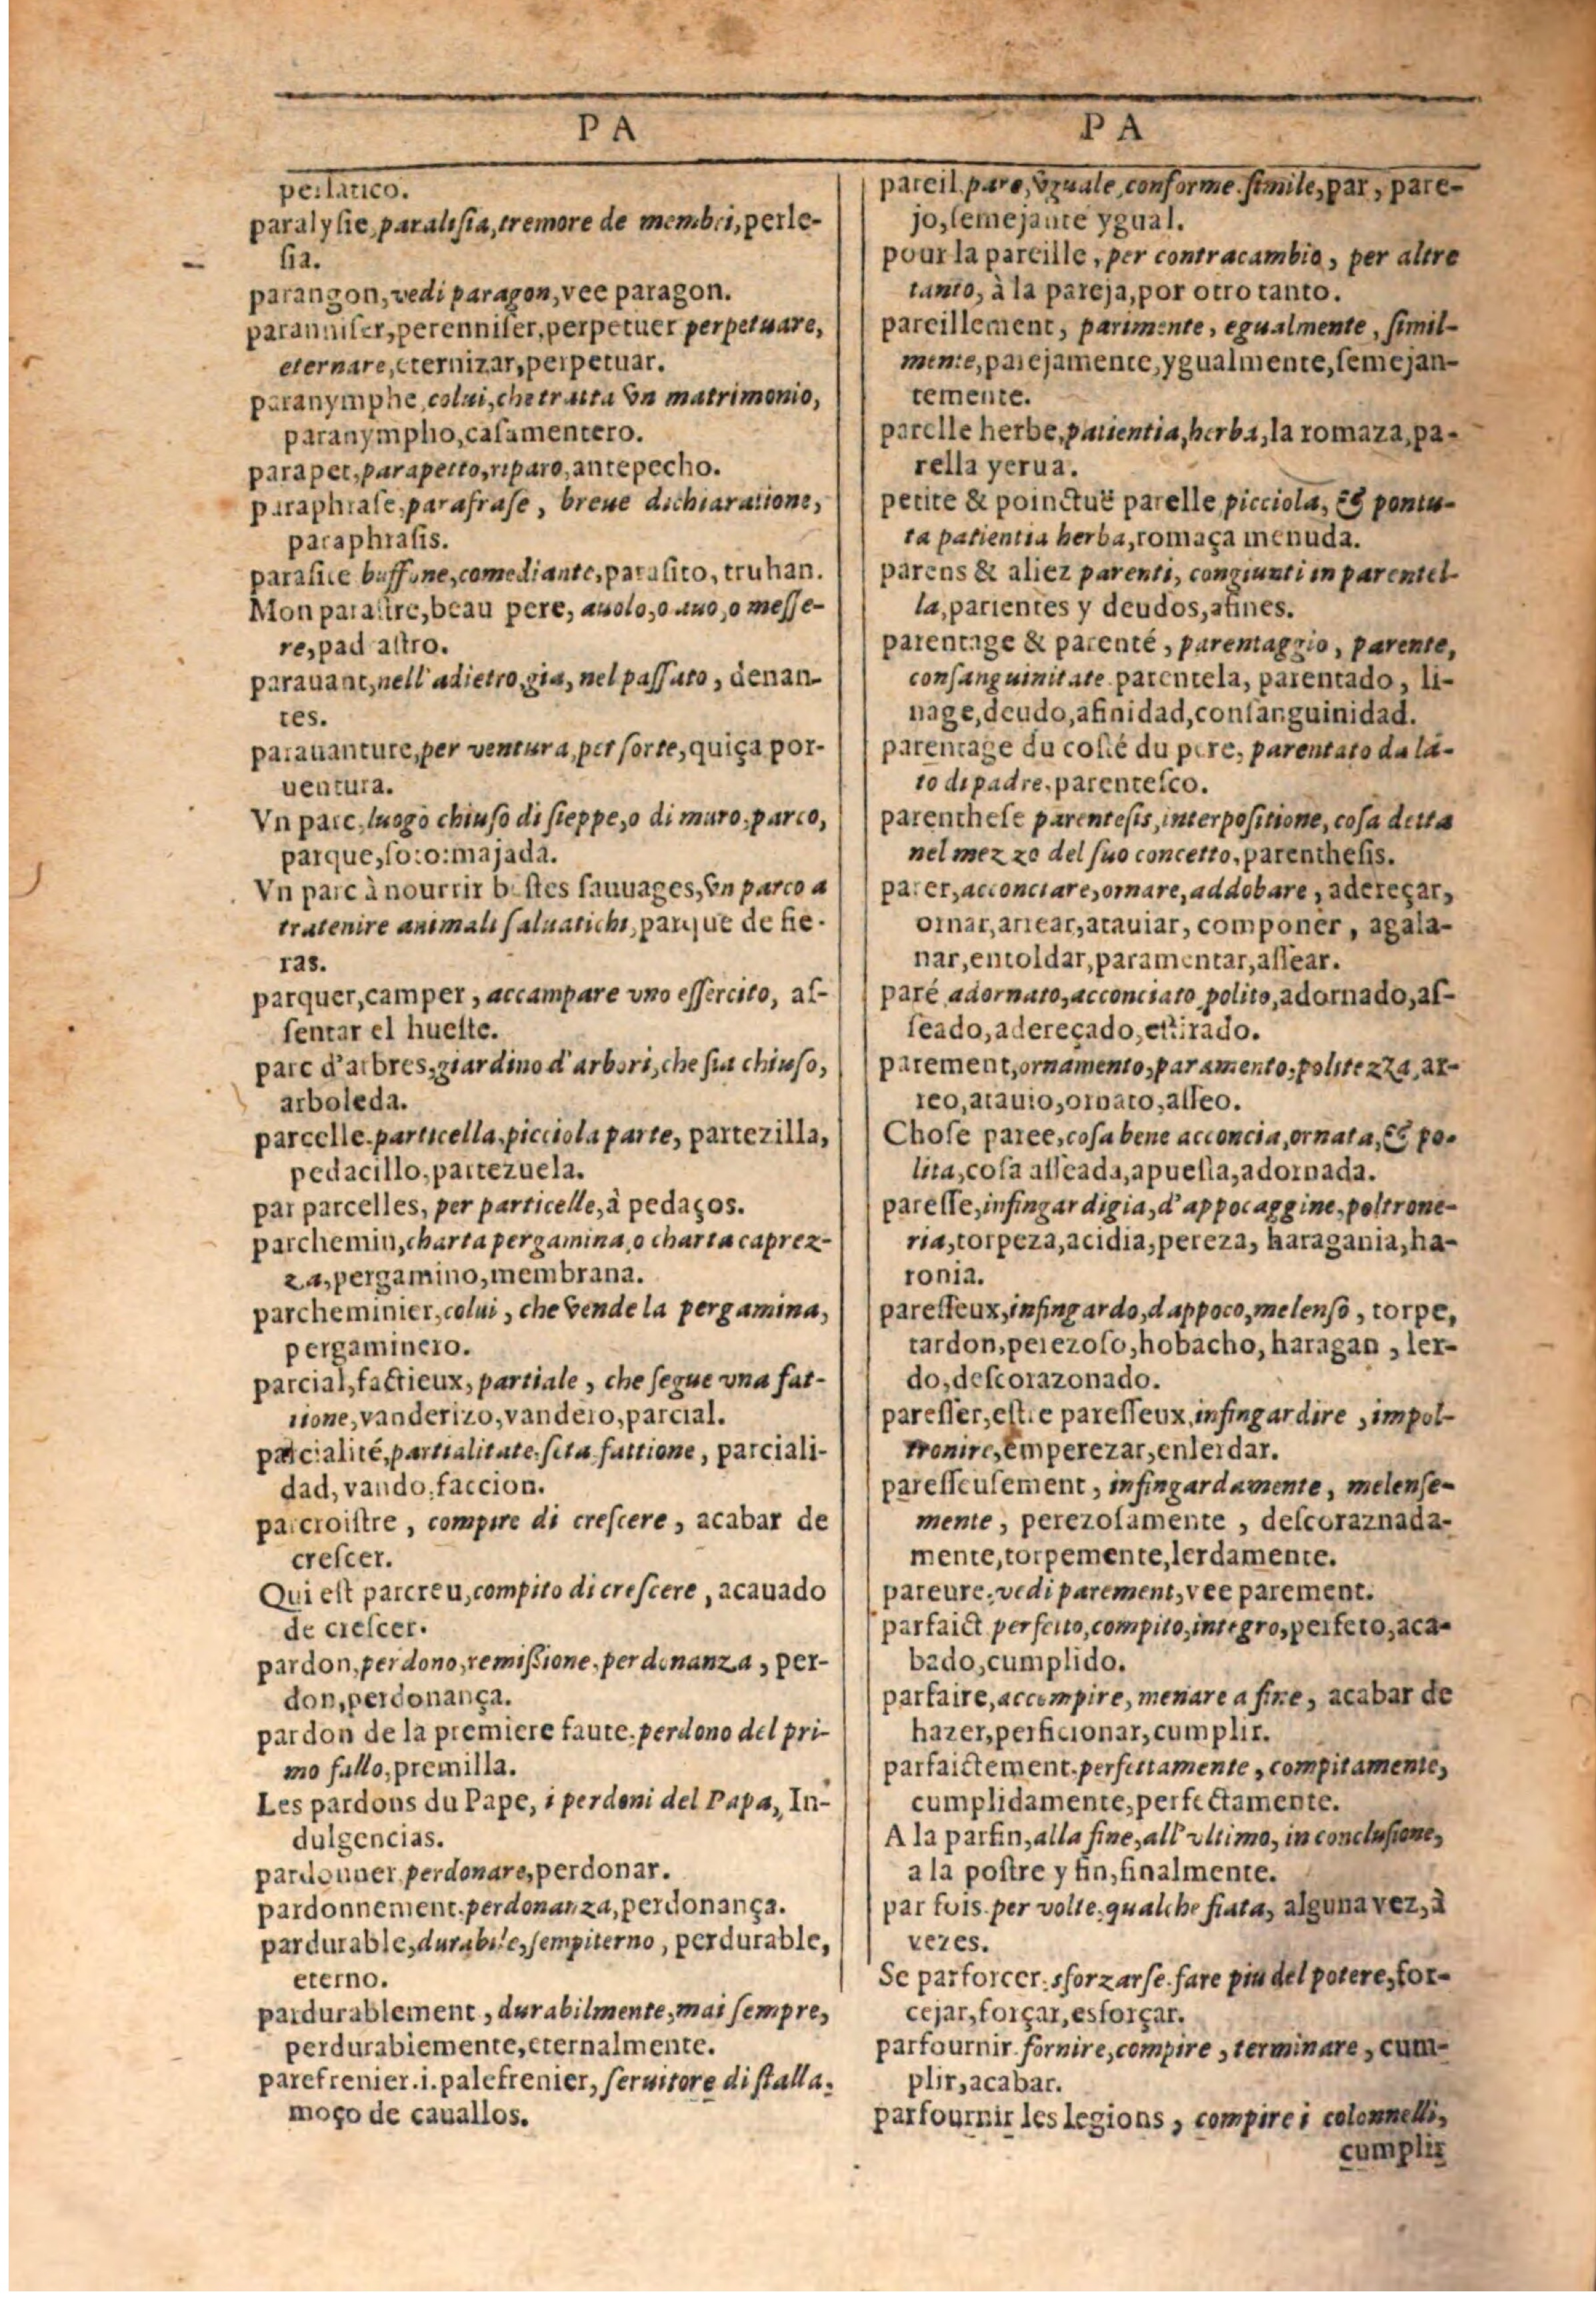 PA
perlatico.
paralysie, paralisia, tremore de membri, perle-
sia.
parangon, vedi paragon, vee paragon.
paranniser, perenniser, perpetuer perpetuare,
eternare, eternizar, perpetuar.
paranymphe, colui, che tratta vn matrimonio,
paranympho, casamentero.
parapet, parapetto, riparo, antepecho.
paraphrase, parafrase, breue dichiaratione,
paraphrasis.
parasite buffone, comediante, parasito, truhan.
Mon parastre, beau pere, auolo, o auo, o messe-
re, pad astro.
parauant, nell'adietro, gia, nel passato, denan-
tes.
parauanture, per ventura, per sorte, quiça por-
uentura.
Vn parc, luogo chiuso di sieppe, o di muro, parco,
parque, soto: majada.
Vn parc à nourrir bestes sauuages, vn parco a
tratenire animali saluatichi, parque de fie-
ras.
parquer, camper, accampare vno essercito, as-
sentar el hueste.
parc d'arbres, giardino d'arbori, che sia chiuso,
arboleda.
parcelle. particella, picciola parte, partezilla,
pedacillo, partezuela.
par parcelles, per particelle, à pedaços.
parchemin, charta pergamina, o charta caprez-
za, pergamino, membrana.
parcheminier, colui, che vende la pergamina,
pergaminero.
parcial, factieux, partiale, che segue vna fat-
tione, vanderizo, vandero, parcial.
parcialité, partialitate. seta fattione, parciali-
dad, vando, faccion.
parcroistre, compire di crescere, acabar de
crescer.
Qui est parcreu, compito di crescere, acauado
de crescer.
pardon, perdono, remissione, perdonanza, per-
don, perdonança.
pardon de la premiere faute. perdono del pri-
mo fallo, premilla.
Les pardons du Pape, i perdoni del Papa, In-
dulgencias.
pardonner, perdonare, perdonar.
pardonnement. perdonanza, perdonança.
pardurable, durabile, sempiterno, perdurable,
eterno.
pardurablement, durabilmente, mai sempre,
perdurablemente, eternalmente.
parefrenier. i. palefrenier, seruitore di stalla.
moço de cauallos.
PA
pareil. pare, vguale, conforme. simile, par, pare-
jo, semejante ygual.
pour la pareille, per contracambio, per altre
tanto, à la pareja, por otro tanto.
pareillement, parimente, egualmente, simil-
mente, parejamente, ygualmente, semejan-
temente.
parelle herbe, patientia, herba, la romaza, pa-
rella yerua.
petite & poinctuë parelle picciola, & pontu-
ta patientia herba, romaça menuda.
parens & aliez parenti, congiunti in parentel-
la, parientes y deudos, afines.
parentage & parenté, parentaggio, parente,
consanguinitate. parentela, parentado, li-
nage, deudo, afinidad, consanguinidad.
parentage du costé du pere, parentato da la-
to di padre, parentesco.
parenthese parentesis, interpositione, cosa detta
nel mezzo del suo concetto, parenthesis.
parer, acconciare, ornare, addobare, adereçar,
ornar, arrear, atauiar, componer, agala-
nar, entoldar, paramentar, assear.
paré adornato, acconciato polito, adornado, as-
seado, adereçado, estirado.
parement, ornamento, paramento, politezza, ar-
reo, atauio, ornato, asseo.
Chose paree, cosa bene acconcia, ornata, & po-
lita, cosa asseada, apuesta, adornada.
paresse, infingardigia, d'appocaggine, poltrone-
ria, torpeza, acidia, pereza, haragania, ha-
ronia.
paresseux, infingardo, dappoco, melenso, torpe,
tardon, perezoso, hobacho, haragan, ler-
do, descorazonado.
paresser, estre paresseux, infingardire, impol-
tronire, emperezar, enlerdar.
paresseusement, infingardamente, melense-
mente, perezosamente, descoraznada-
mente, torpemente, lerdamente.
pareure, vedi parement, vee parement.
parfaict perfetto, compito, integro, perfeto, aca-
bado, cumplido.
parfaire, accompire, menare a fine, acabar de
hazer, perficionar, cumplir.
parfaictement. perfettamente, compitamente,
cumplidamente, perfectamente.
A la parfin, alla fine, all'vltimo, in conclusione,
a la postre y fin, finalmente.
par fois. per volte. qualche fiata, alguna vez, à
vezes.
Se parforcer. sforzarse. fare piu del potere, for-
cejar, forçar, esforçar.
parfournir. fornire, compire, terminare, cum-
plir, acabar.
parfournir les legions, compire i colonnelli,
cumplir